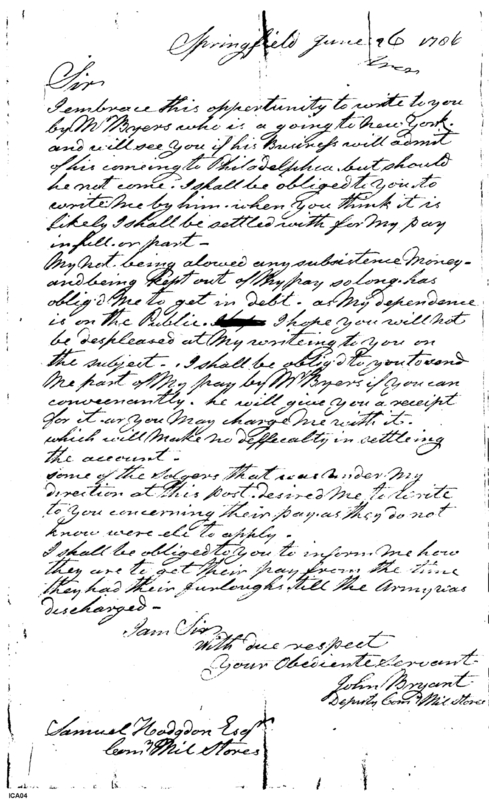 Springfield June 26 1786
Sir
I embrace this opportunity to write to you
by Mr Byers who is a going to New York.
and will see you if his Business will admit
of his comeing to Philadelphia. but should
he not come. I shall be obliged to you to
write me by him. when you think it is
likely I shall be settled with for my pay
in full. or part –
My not being alowed any subsistence money –
and being kept out of my pay so long. has
oblig'd me to get in debt. as my dependence
is on the Public. I hope you will not
be despleased at my writeing to you on
the subject. I shall be oblig'd to you to send
me part of my pay by Mr Byers if you can
conveenantly. he will give you a receipt
for it. or you may charge me with it.
which will make no deffecalty in settleing
the account.
some of the Solgers that was under my
direction at this post. desired me to write
to you concerning their pay. as they do not
know were els to apply.
I shall be obliged to you to inform me how
they are to get their pay from the time
they had their furloughs till the Army was
discharged –
I am Sir
with due respect
Your Obediente Servant
John Bryant
Deputy Comy Mil Stores
Samuel Hodgdon Esqr
Comy Mil Stores
ICA04